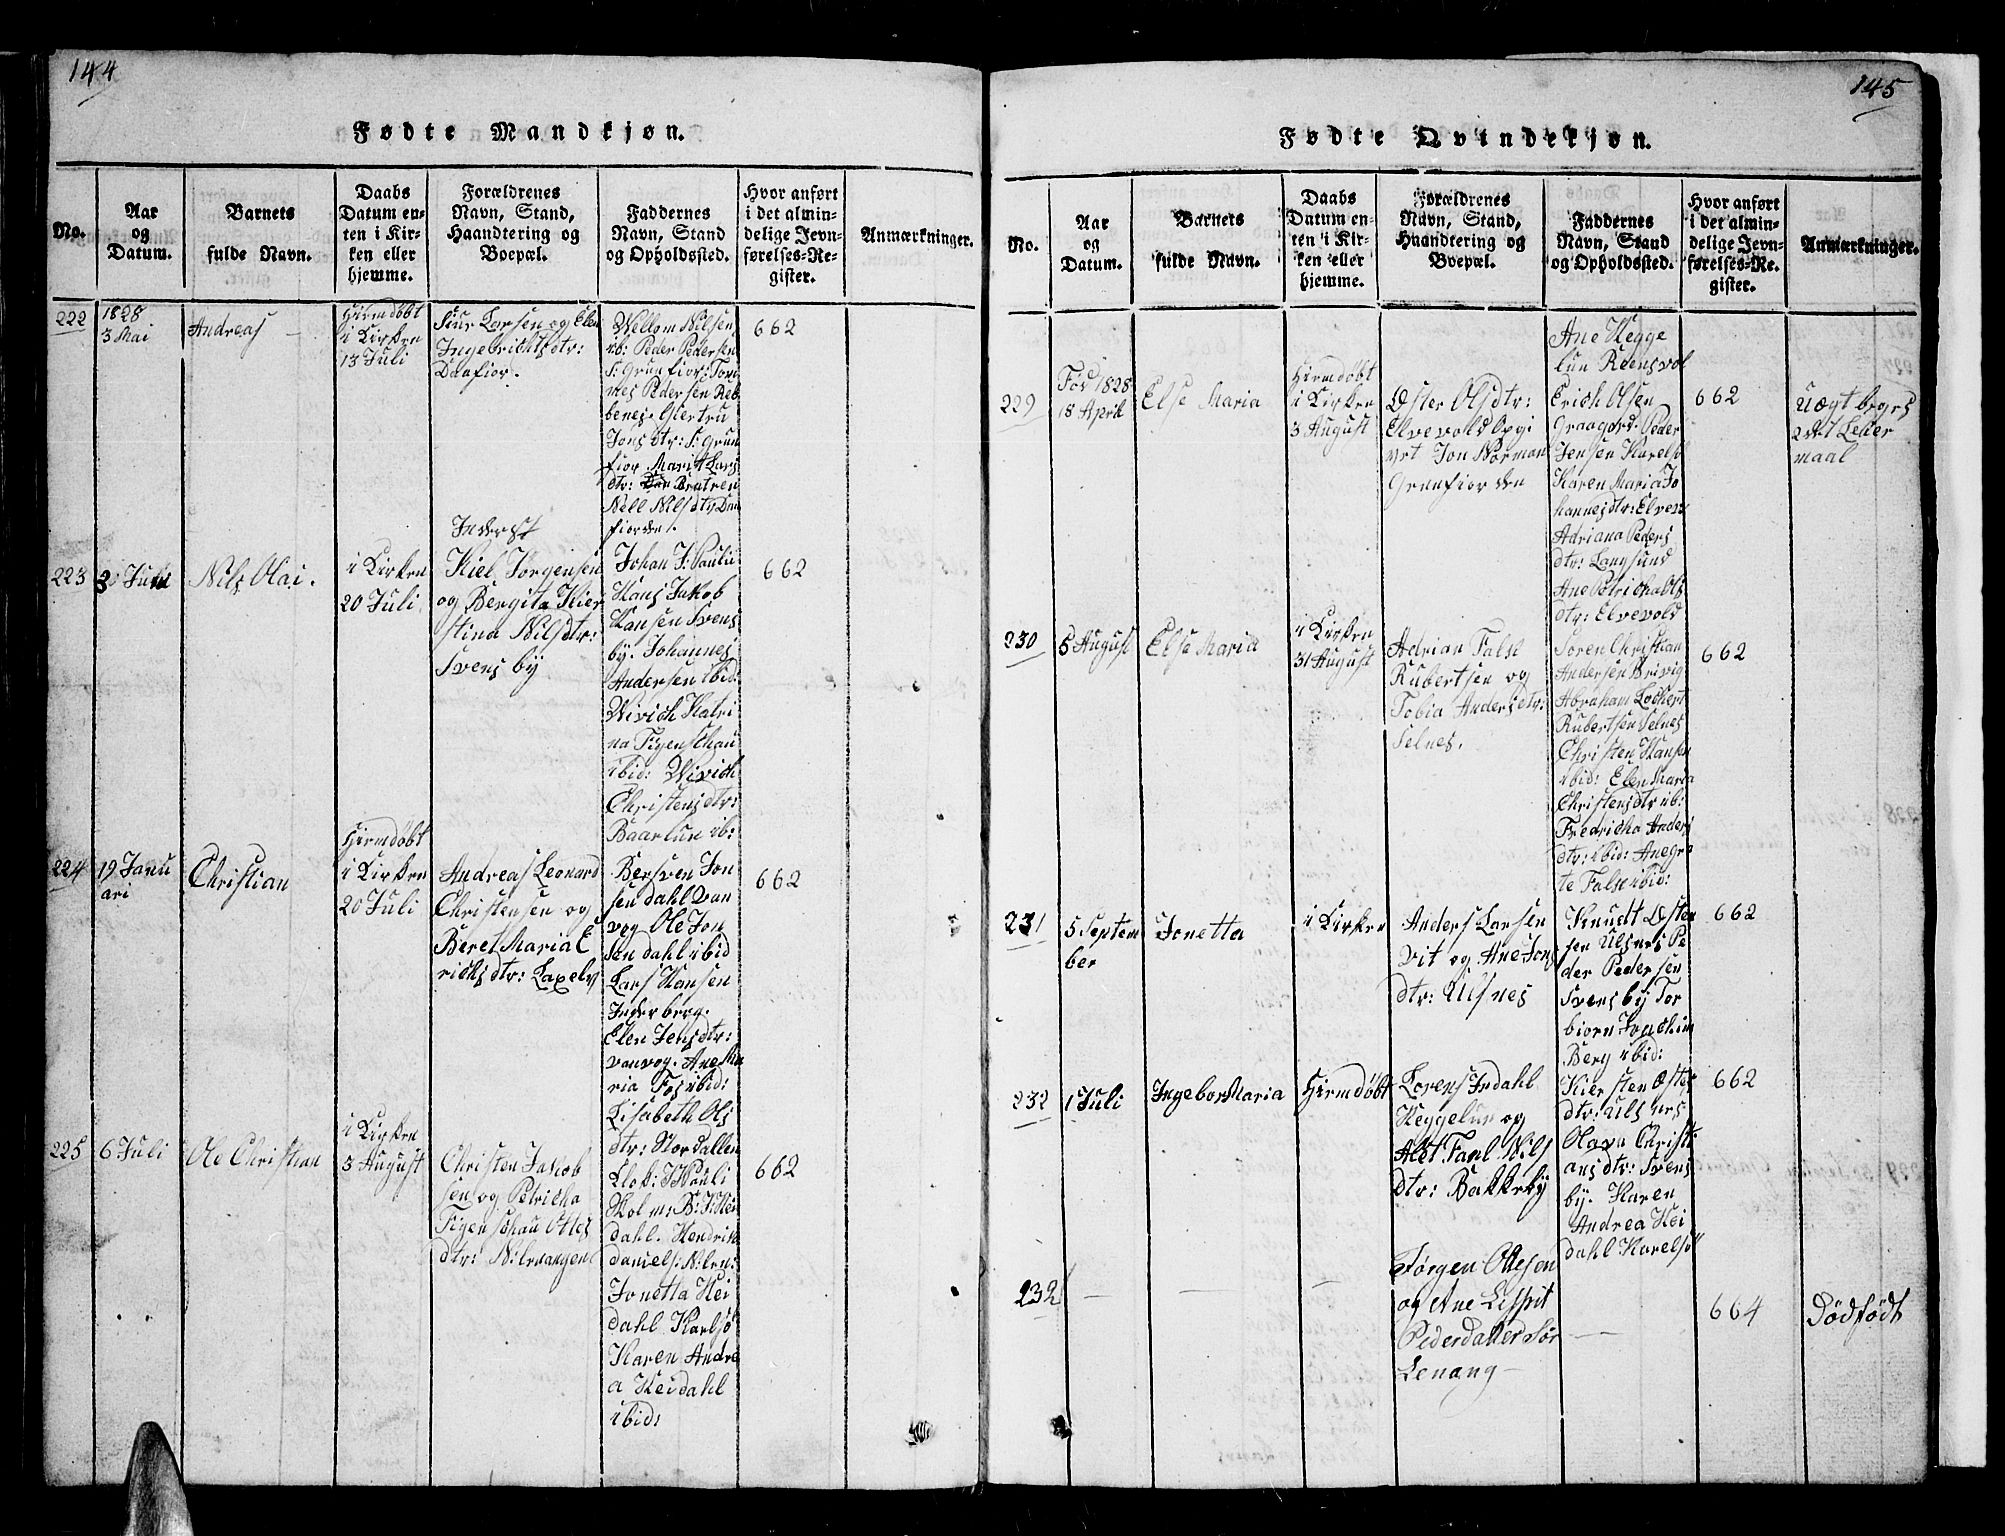 144
Fødte Mandkjøn.
No.
Aar
og
Datum.
Barnets
fulde Navn.
Daabs
Datum en-
ten i Kir-
ken eller
hjemme.
Forældrenes
Navn, Stand,
Haandtering og
Boepæl.
Faddernes
Navn, Stand
og Opholdssted.
Hvor anført
i det almin-
delige Jevn-
førelses-Re-
gister.
Anmærkninger.
222
1828
3 Mai
Andreas
Hiemdøbt
i Kirken
13 Juli
Siur Larsen og Elen
Ingebrichtsdtr:
Danfior.
Wellom Nilsen
ib: Peder Pedersen
S: Grunfior: Tom
mes Pedersen Reb
benes. Giertru
Jonsdtr: S: Grun
fior Marit Lars
dtr: Bratren
Nell Nilsdtr Dan
fiorden.
662
223
2 Juli
Nils Olai.
i Kirken
20 Juli
Inderst
Kiel Jørgensen
og Bergita Kier
stina Nilsdtr:
Svensby
Johan J: Pauli
Hans Jakob
Hansen Svens
by. Johannes
Andersen ibid:
Wivich Katri
na Figenschau
ibid: Wivich
Christensdtr:
Baarlun ib:
662
224
19 Janu
ari
Christian
Hiemdøbt
i Kirken
20 Juli
Andreas Leonard
Christensen og
Beret Maria E
richsdtr: Laxelv
Bersven Jon
sen dahl Van
vog Ole Jon
sen dahl ibid
Lars Hansen
Inderberg.
Elen Jensdtr:
vanvog. Ane Ma
ria Fos ibid:
Lisabeth Ols
dtr: Nordallen
662
225
6 Juli
Ole Christian
i Kirken
3 August
Christen Jakob
sen og Petricha
Figenschau Ottes
dtr: N: Lenangen
Klok: J Pauli
Skolm: B: J: Hei
dahl. Hendrik
Daniels: N: Len:
Jonetta Hei
dahl Karlsö
Karen Andre
a Heidahl
ibid:
662
145
Fødte Qvindekjøn.
No.
Aar
og
Datum.
Barnets
fulde Navn.
Daabs
Datum en-
ten i Kir-
ken eller
hjemme.
Forældrenes
Navn, Stand,
Haandtering og
Boepæl.
Faddernes
Navn, Stand
og Opholdssted.
Hvor anført
i det almin-
delige Jevn-
førelses-Re-
gister.
Anmærkninger.
229
Fød 1828
18 April
Else Maria
Hiemdøbt
i Kirken
3 August
Øster Olsdtr:
Elvevold Opgi
vet Jon Norman
Grunfiorden
Ane Hegge
lun Reensvol
Erich Olsen
Graagord. Peder
Jensen Karelsö
Karen Maria Jo
hannesdtr: Elven
Adriana Peders
dtr: Langsund
Ane Petricha Ols
dtr: Elvevold
662
Uægt beges
2det Leier
maal
230
5 August
Else Maria
i Kirken
31 August
Adrian False
Rubertsen og
Tobia Andersdtr:
Selnes.
Soren Christian
Andersen Brivig
Abraham Lochert
Rubertsen Selnes
Christen Hansen
ibid: Elen Maria
Christensdtr ib:
Fredricha Anders
dtr: ibid: Anegre
te False ibid:
662
231
5 Septem
ber
Jonetta
i Kirken
Anders Larsen
Vit og Ane Jons
dtr: Ulsnes
Knudt Østen
sen Ulsnes Pe
der Pedersen
Svensby Tor
biorn Joachim
Berg ibid:
662
232
1 Juli
Ingebor Maria
Hiemdøbt
Lorens Indahl
Heggelun og
Alet Farl Nils
dtr: Bakkeby
Kiersten Østes
dtr: Ulsnes
Olava Christi
ansdtr: Svens
by. Karen
Andrea Hei
dahl Karelsö
662
232
Jørgen Ottesen
og Ane Lispit
Pedersdatter Sör
Lenang
664
Dödfödt